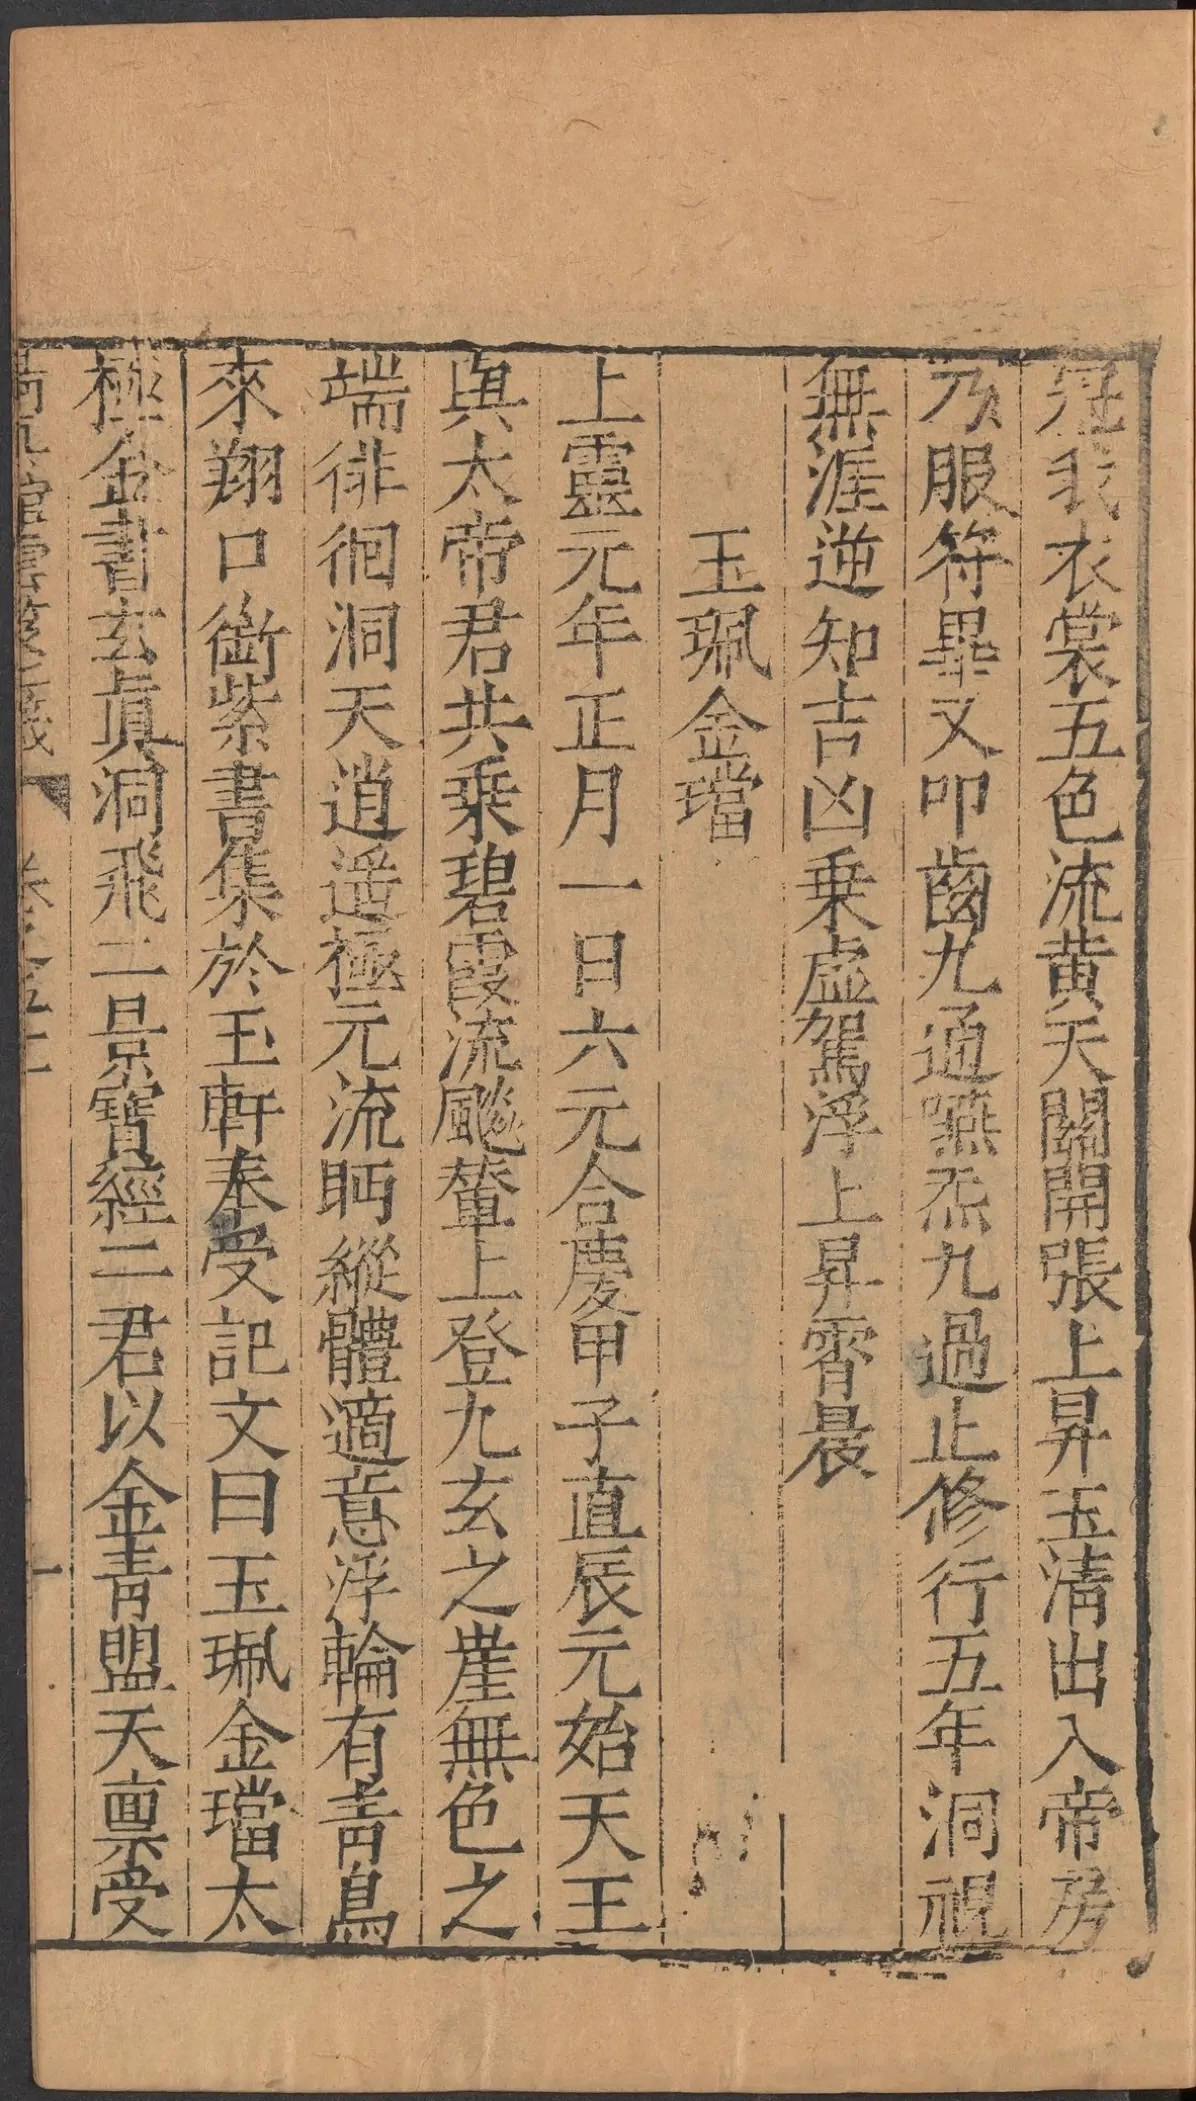 冠我衣裳五色流黄天關開張上昇玉清出入帝房
乃服符畢又叩齒九通嚥炁九過止修行五年洞視
無涯逆知吉凶乗虛駕浮上昇霄晨
玉珮金璫
上靈元年正月一日六元合慶甲子直辰元始天王
與太帝君共乗碧霞流飈輦上登九玄之崖無色之
端徘徊洞天逍遥極元流眄縱體適意浮輪有青鳥
來翔口銜紫書集於玉軒奉受記文曰玉珮金璫太
極金書玄眞洞飛二景寶經二君以金青盟天禀受